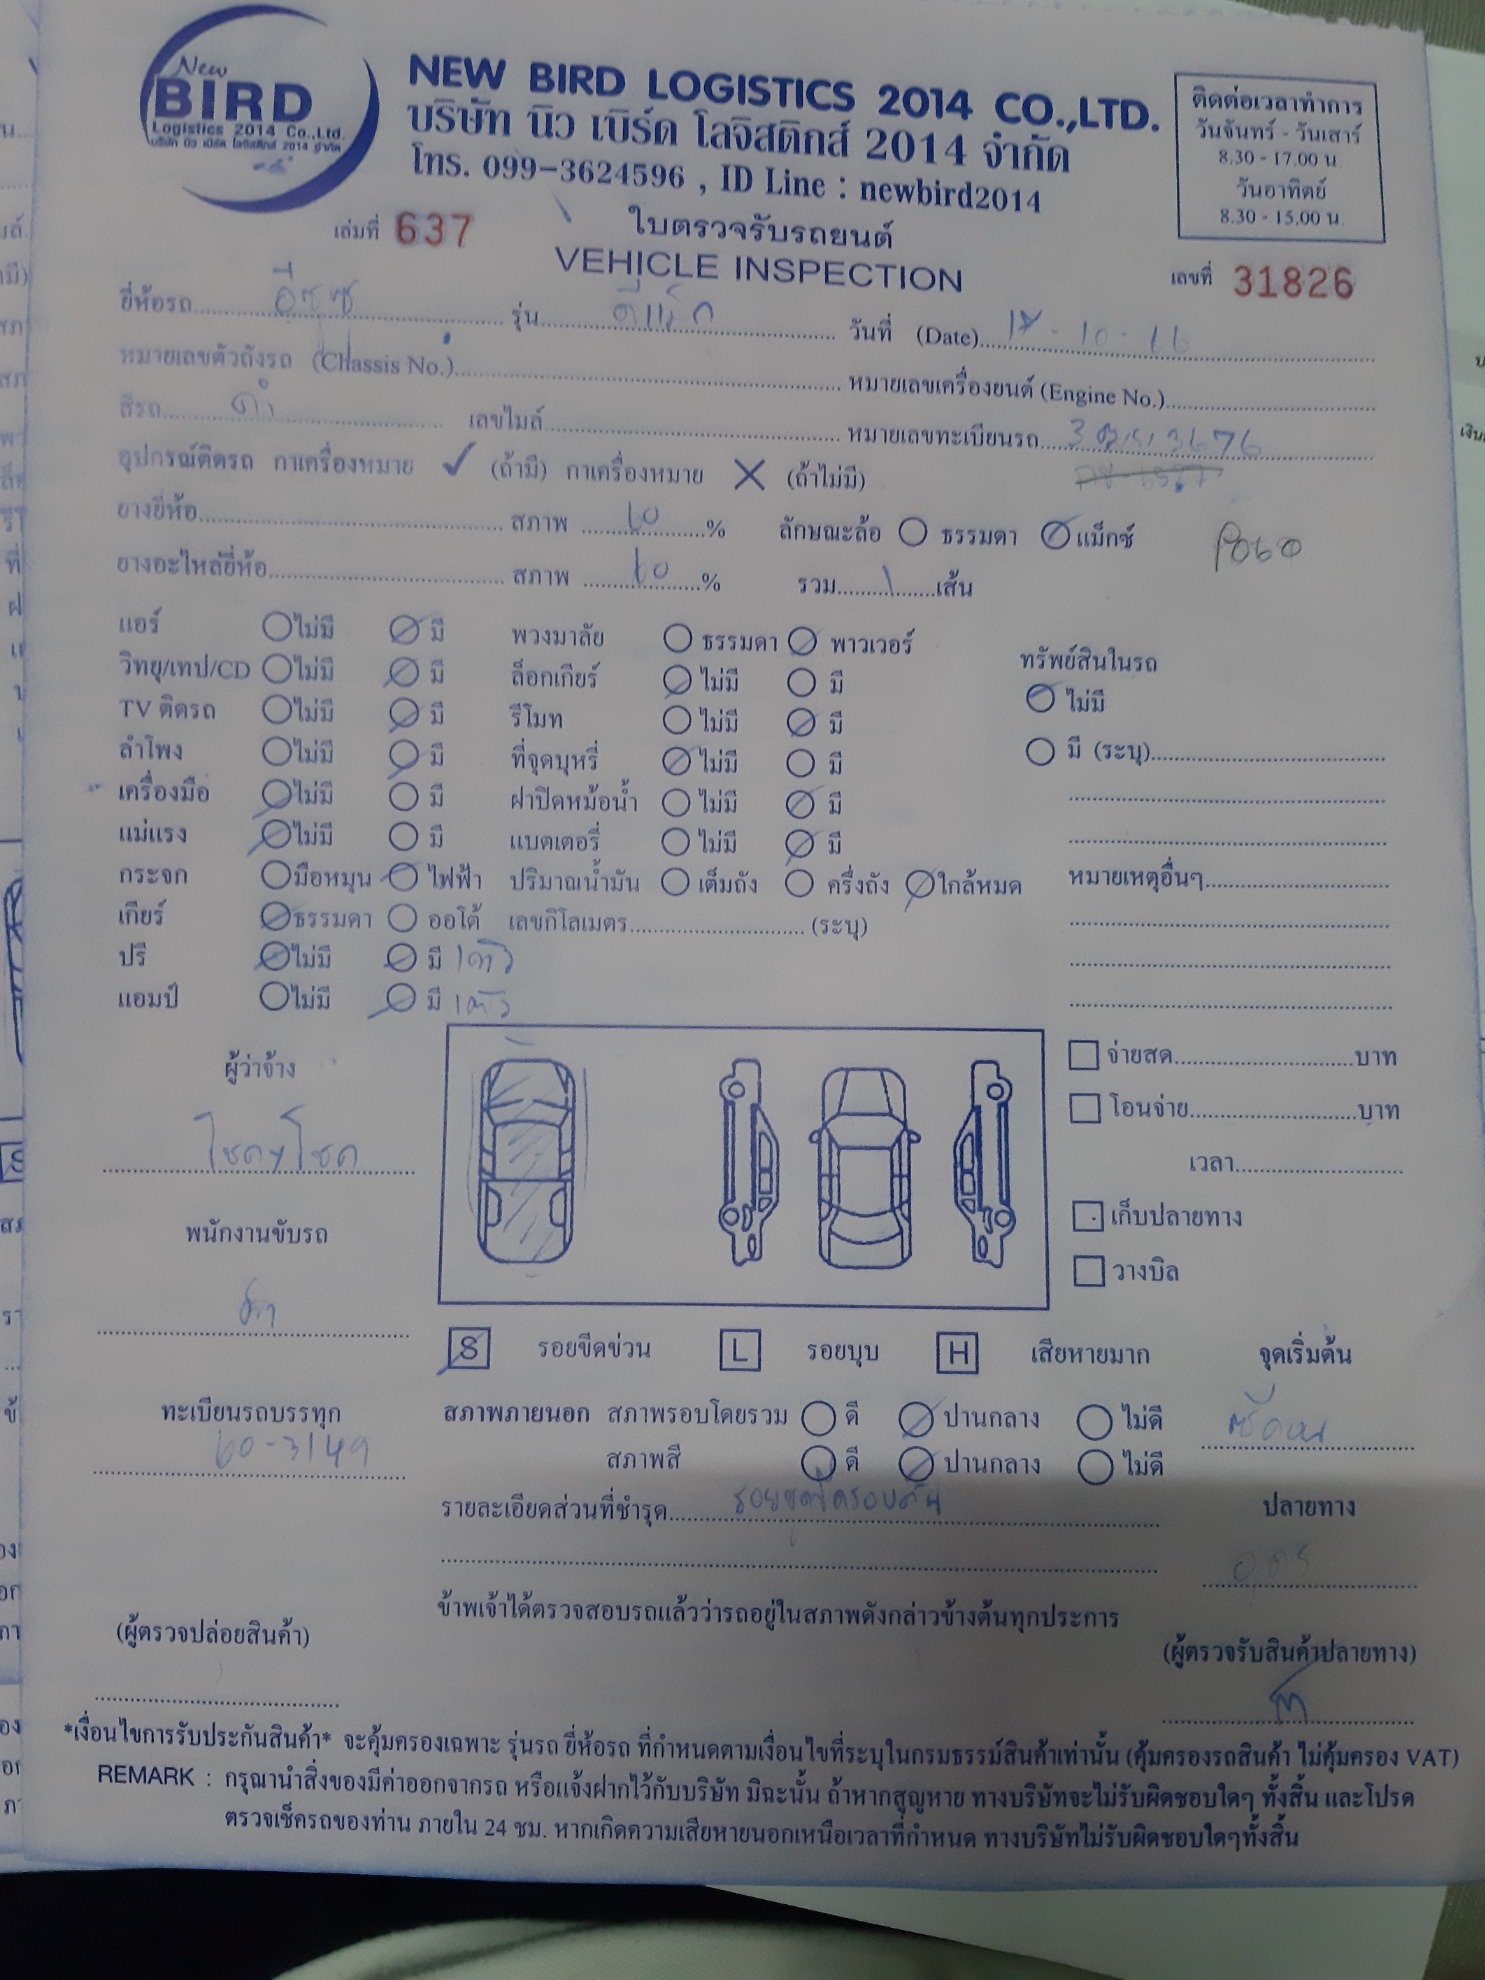 New
BIRD
Logistics 2014 Co.,Ltd.
บริษัท นิว เบิร์ด โลจิสติกส์ 2014 จำกัด
NEW BIRD LOGISTICS 2014 CO.,LTD.
บริษัท นิว เบิร์ด โลจิสติกส์ 2014 จำกัด
โทร. 099-3624596 , ID Line : newbird2014
ติดต่อเวลาทำการ
วันจันทร์ - วันเสาร์
8.30 - 17.00 น.
วันอาทิตย์
8.30 - 15.00 น.
เล่มที่ 637
ใบตรวจรับรถยนต์
VEHICLE INSPECTION
เลขที่ 31826
ยี่ห้อรถ อีซูซุ รุ่น ดีแม็ก วันที่ (Date)
หมายเลขตัวถังรถ (Chassis No.) หมายเลขเครื่องยนต์ (Engine No.)
สีรถ ดำ เลขไมล์ หมายเลขทะเบียนรถ
อุปกรณ์ติดรถ กาเครื่องหมาย ✓ (ถ้ามี) กาเครื่องหมาย ✕ (ถ้าไม่มี)
ยางยี่ห้อ สภาพ 60 % ลักษณะล้อ ธรรมดา แม็กซ์
ยางอะไหล่ยี่ห้อ สภาพ 60 % รวม 1 เส้น
แอร์ ไม่มี มี พวงมาลัย ธรรมดา พาวเวอร์
ทรัพย์สินในรถ
วิทยุ/เทป/CD ไม่มี มี ล็อกเกียร์ ไม่มี มี ไม่มี
TV ติดรถ ไม่มี มี รีโมท ไม่มี มี
ลำโพง ไม่มี มี ที่จุดบุหรี่ ไม่มี มี มี (ระบุ)
เครื่องมือ ไม่มี มี ฝาปิดหม้อน้ำ ไม่มี มี
แม่แรง ไม่มี มี แบตเตอรี่ ไม่มี มี
กระจก มือหมุน ไฟฟ้า ปริมาณน้ำมัน เต็มถัง ครึ่งถัง ใกล้หมด หมายเหตุอื่นๆ
เกียร์ ธรรมดา ออโต้ เลขกิโลเมตร (ระบุ)
ปรี ไม่มี มี
แอมป์ ไม่มี มี
ผู้ว่าจ้าง
โชคๆโชค
จ่ายสด บาท
โอนจ่าย บาท
เวลา
พนักงานขับรถ
เก็บปลายทาง
วางบิล
S รอยขีดข่วน L รอยบุบ H เสียหายมาก จุดเริ่มต้น
ทะเบียนรถบรรทุก
60-3149
สภาพภายนอก สภาพรอบโดยรวม ดี ปานกลาง ไม่ดี
สภาพสี ดี ปานกลาง ไม่ดี
รายละเอียดส่วนที่ชำรุด ปลายทาง
อุดร
ข้าพเจ้าได้ตรวจสอบรถแล้วว่ารถอยู่ในสภาพดังกล่าวข้างต้นทุกประการ
(ผู้ตรวจปล่อยสินค้า) (ผู้ตรวจรับสินค้าปลายทาง)
*เงื่อนไขการรับประกันสินค้า* จะคุ้มครองเฉพาะ รุ่นรถ ยี่ห้อรถ ที่กำหนดตามเงื่อนไขที่ระบุในกรมธรรม์สินค้าเท่านั้น (คุ้มครองรถสินค้า ไม่คุ้มครอง VAT)
REMARK : กรุณานำสิ่งของมีค่าออกจากรถ หรือแจ้งฝากไว้กับบริษัท มิฉะนั้น ถ้าหากสูญหาย ทางบริษัทจะไม่รับผิดชอบใดๆ ทั้งสิ้น และโปรด
ตรวจเช็ครถของท่าน ภายใน 24 ชม. หากเกิดความเสียหายนอกเหนือเวลาที่กำหนด ทางบริษัทไม่รับผิดชอบใดๆทั้งสิ้น